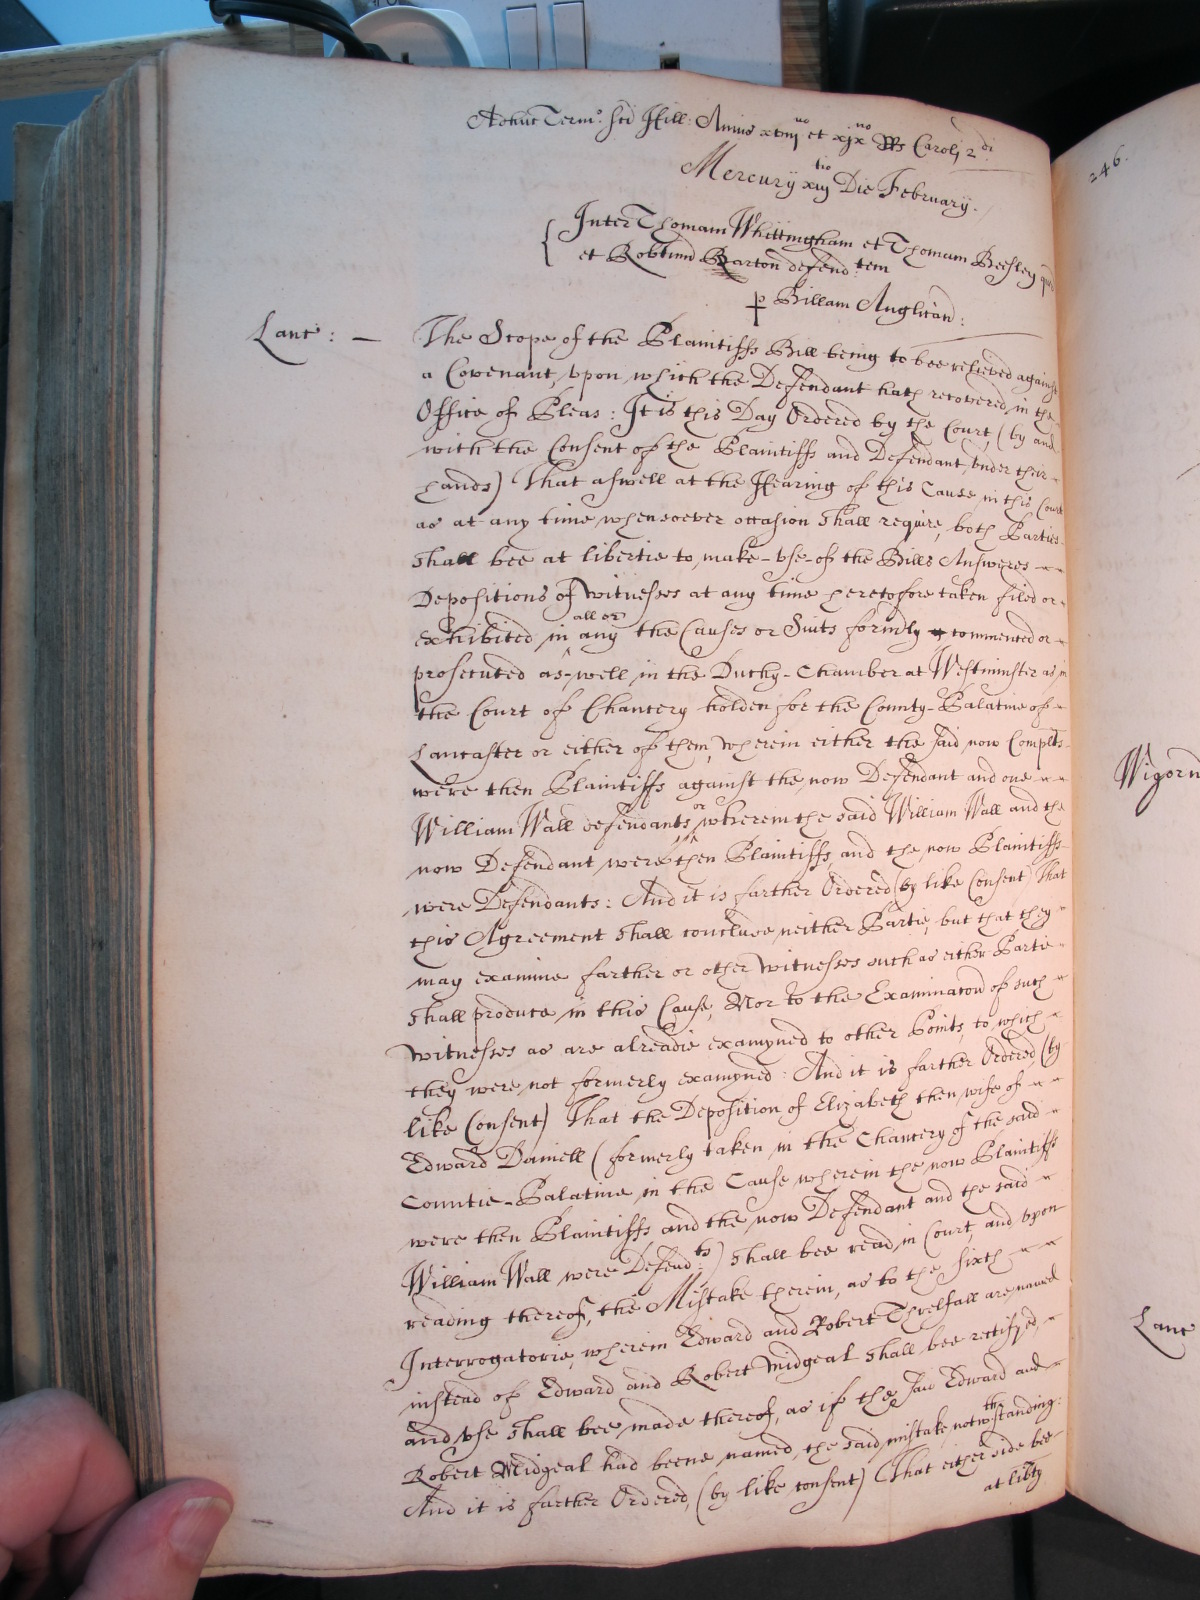 Adhuc Termo: Scti Hill: Annis xviij uo et xjx no RRs Carolj 2 di
Mercurij xiij tio Die February.
Inter Thomam Whittingham et Thomam Beesley quer
et Robtum Barton defend:tem
p Billam Anglican:
246.
Lanc: — The Scope of the Plaintiffs Bill being to bee relieved against
a Covenant, vpon which the Defendant hath recovered in the
Office of Pleas: It is this Day Ordered by the Court, (by and
with the Consent of the Plaintiffs and Defendant, vnder their
hands) That aswell at the Hearing of this Cause in this Court
as at any time whensoever occasion shall require, both Parties
shall bee at libertie to make-vse-of the Bills Answeres
Depositions of Witnesses at any time heretofore taken filed or
exhibited in all or any the Causes or Suits formly commenced or
prosecuted as-well in the Duchy-Chamber at Westminster as in
the Court of Chancery holden for the County-Palatine of
Lancaster or either of them, wherein either the said now Complts
were then Plaintiffs against the now Defendant and one
William Wall defendants, or wherein the said William Wall and the
now Defendant were then Plaintiffs, and the now Plaintiffs
were Defendants: And it is farther Ordered (by like Consent) That
this Agreement shall conclude neither Partie, but that they
may examine farther or other Witnesses such as either Partie
shall produce in this Cause, Nor to the Examinacon of such
Witnesses as are alreadie examyned to other Points, to which
they were not formerly examyned: And it is farther Ordered (by
like Consent) That the Deposition of Elizabeth then wife of
Edward Daniell (formerly taken in the Chancery of the said
Countie-Palatine in the Cause wherein the now Plaintiffs
were then Plaintiffs and the now Defendant and the said
William Wall were Defend:ts) shall bee read in Court, and vpon
reading thereof, the Mistake therein, as to the sixth
Interrogatorie, wherein Edward and Robert Threlfall are named
instead of Edward and Robert Midgeal shall bee rectifyed,
and vse shall bee made thereof, as if the said Edward and
Robert Midgeal had beene named, the said mistake notwthstanding:
And it is farther Ordered, (by like consent) That either side bee
at libty
Wigorn
Lanc